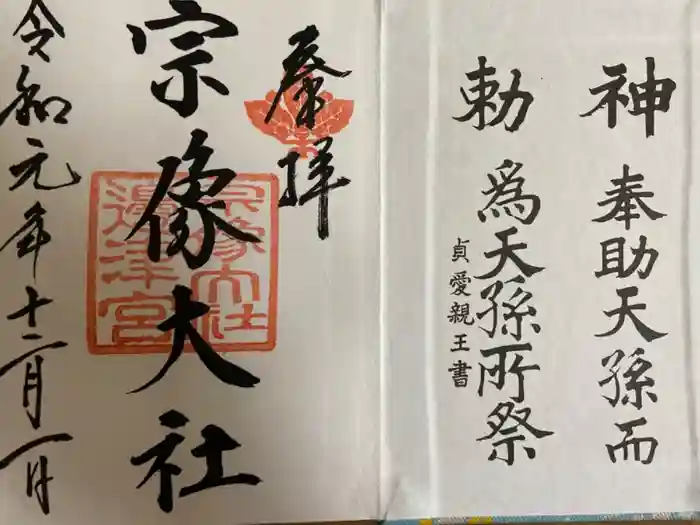 神勅
奉助天孫而
為天孫所祭
貞愛親王書
奉拝
宗像大社
宗像大社
邊津宮
令和元年十二月一日